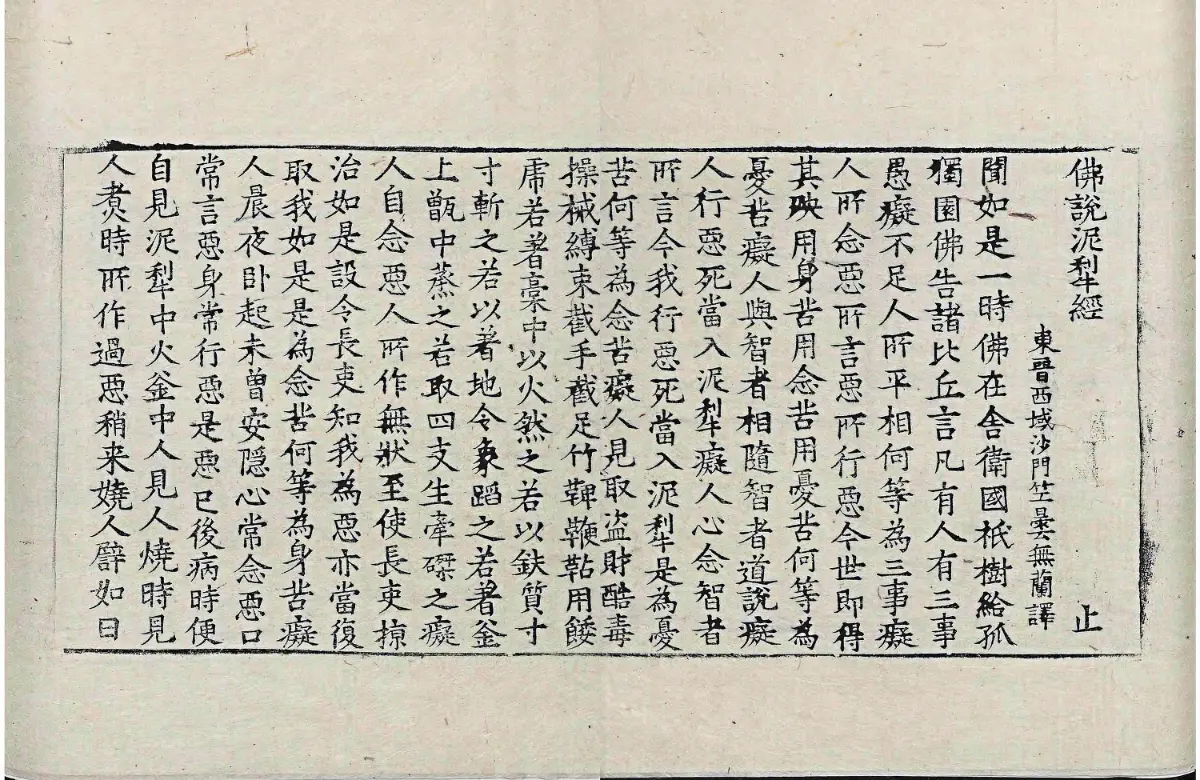 佛說泥犁經 止
東晉西域沙門竺曇無蘭譯
聞如是一時佛在舍衛國祇樹給孤
獨園佛告諸比丘言凡有人有三事
愚癡不足人所平相何等為三事癡
人所念惡所言惡所行惡今世即得
其殃用身苦用念苦用憂苦何等為
憂苦癡人與智者相隨智者道說癡
人行惡死當入泥犁癡人心念智者
所言今我行惡死當入泥犁是為憂
苦何等為念苦癡人見取盜財酷毒
操械縛束截手截足竹鞞鞭鞊用餧
虎若著稾中以火然之若以鈇質寸
寸斬之若以著地令象蹈之若著釜
上甑中蒸之若取四支生牽磔之癡
人自念惡人所作無狀至使長吏掠
治如是設令長吏知我為惡亦當復
取我如是是為念苦何等為身苦癡
人晨夜卧起未曾安隱心常念惡口
常言惡身常行惡是惡已後病時便
自見泥犁中火釜中人見人燒時見
人煑時所作過惡稍来嬈人譬如日